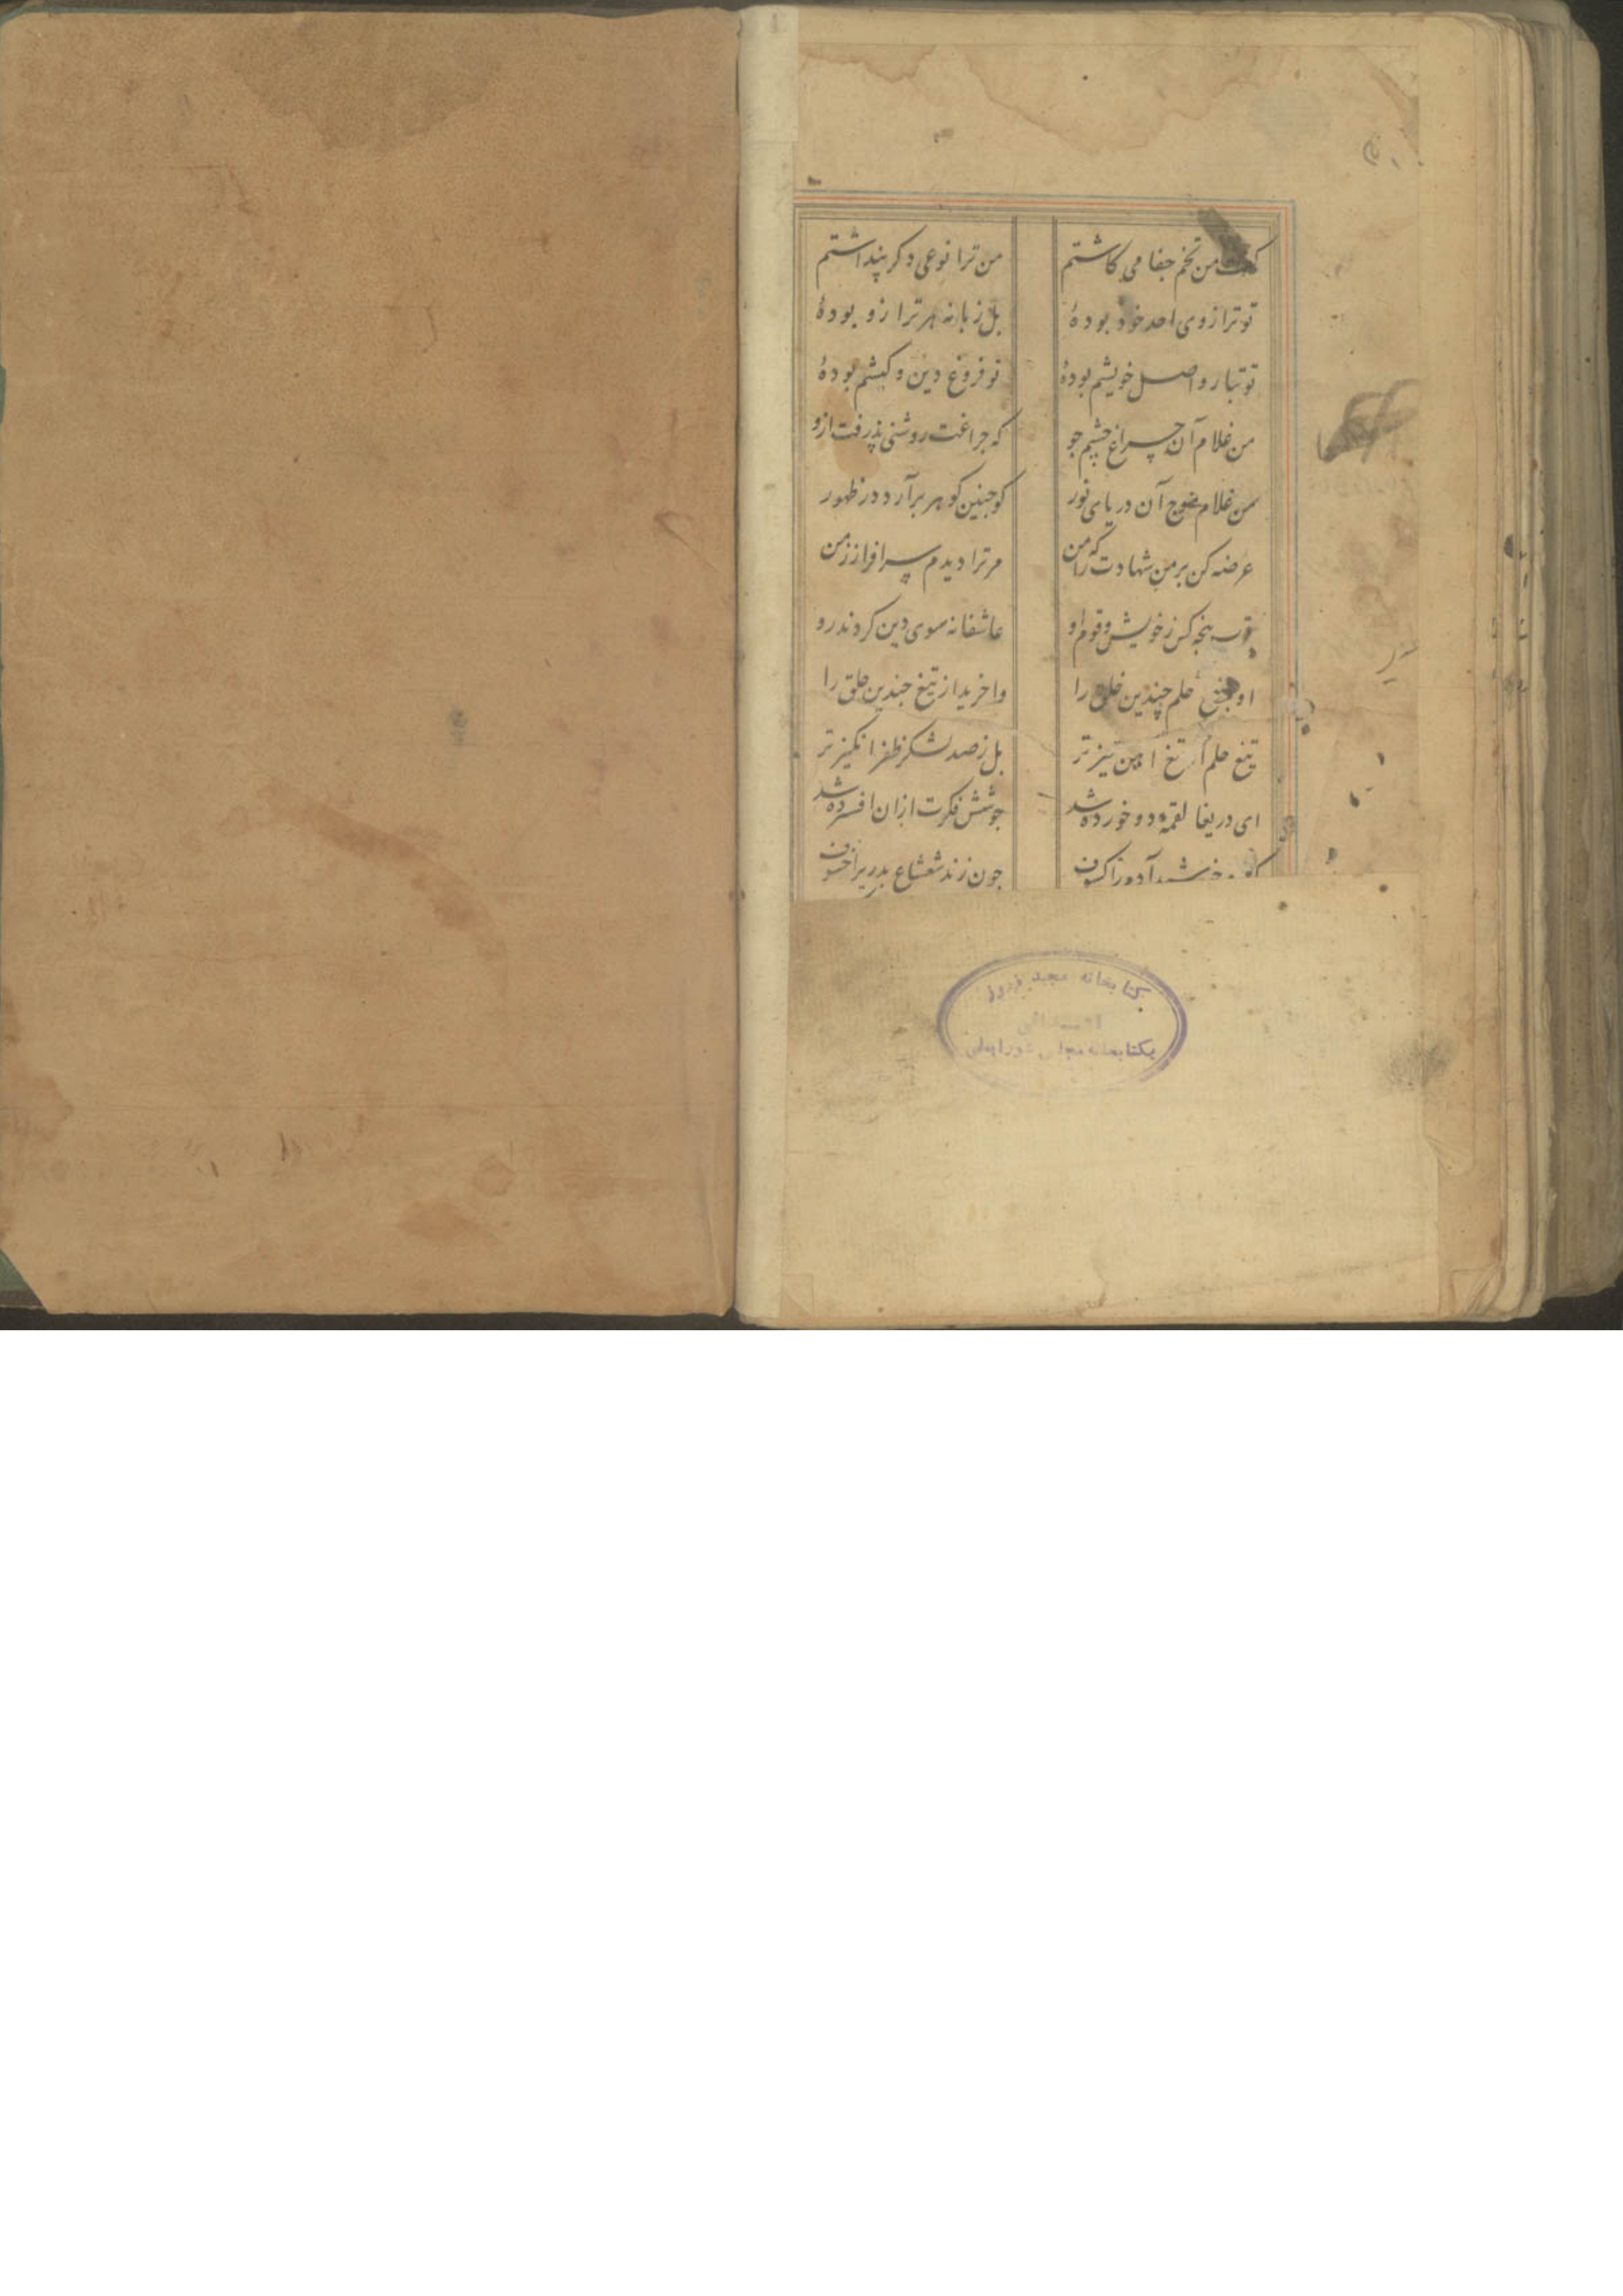 گفت من تخم جفا می کاشتم من ترا نوعی دکر پنداشتم
تو ترازوی احد خود بودهٔ بل زبانه هر ترازو بودهٔ
تو تبار و اصل خویشم بودهٔ تو فروغ دین و کیشم بودهٔ
من غلام آن چراغ چشم جو که جراغت روشنی پذرفت ازو
من غلام موج آن دریای نور کو جنین کوهر برآرد در ظهور
عرضه کن بر من شهادت را که من مر ترا دیدم سرافراز زمن
قرب پنجه کس ز خویش و قوم او عاشقانه سوی دین کردند رو
او بتیغ حلم چندین خلق را وا خرید از تیغ جندین حلق را
تیغ حلم از تیغ اهن تیز تر بل ز صد لشکر ظفر انکیز تر
ای دریغا لقمهٔ دو خورده شد جوشش فکرت ازان افسرده شد
خورشید آمد در کسوف جون زند شعشاع بدری را خسوف
کتابخانه مجید فیروز
بکتابخانه مجلس شورایملی